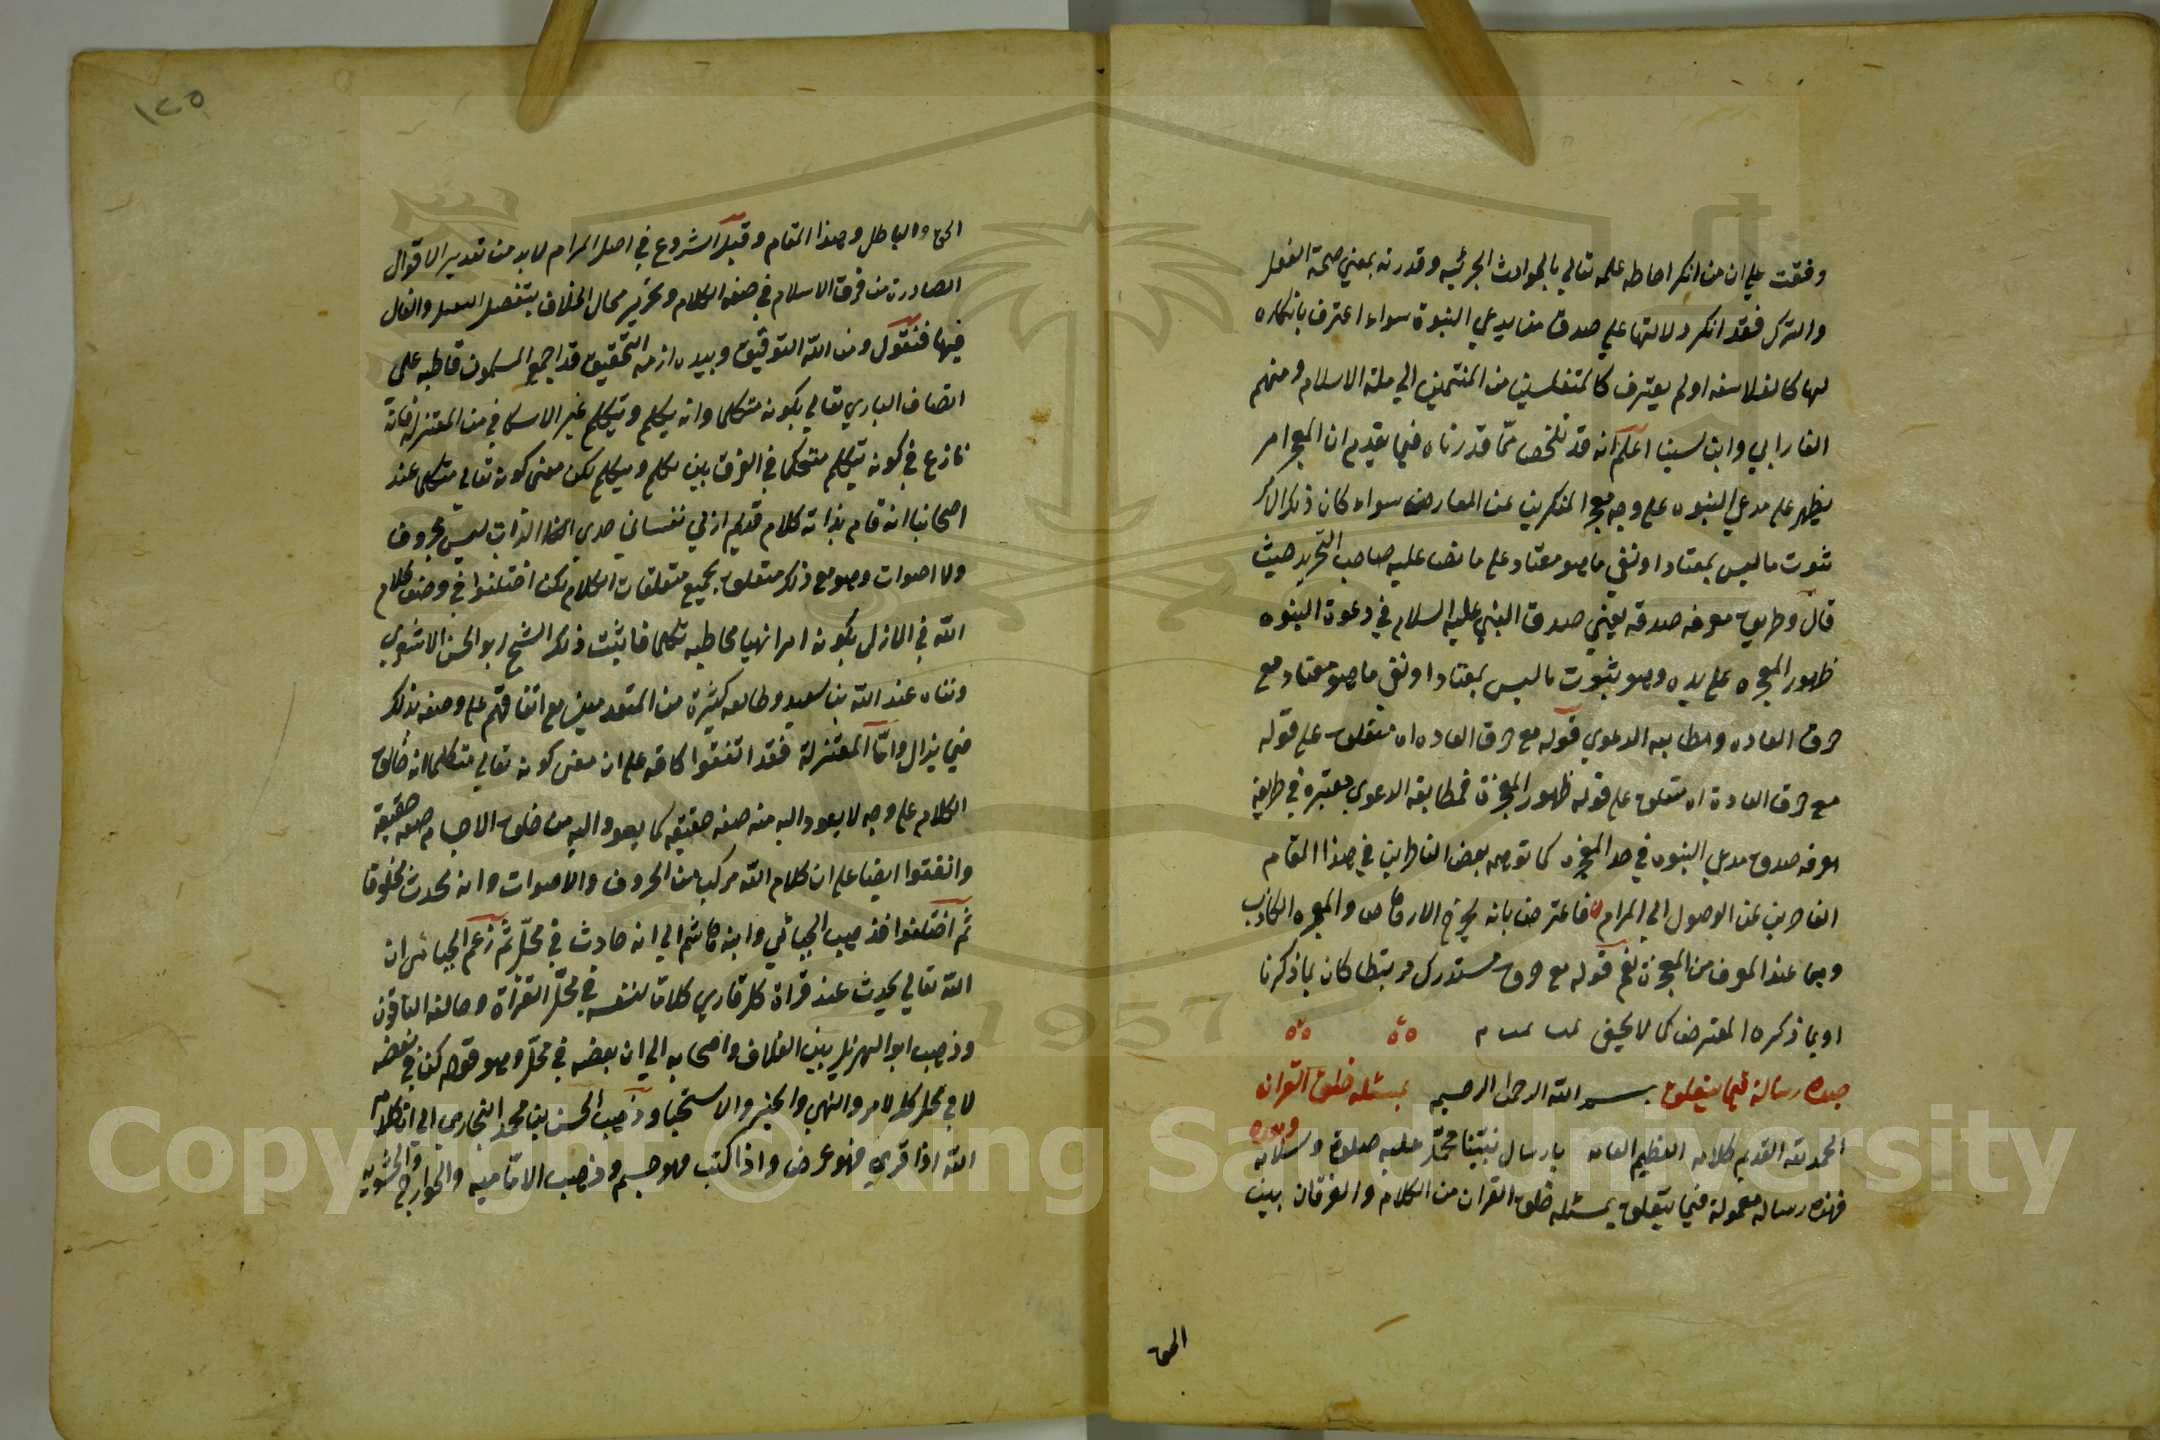 وقفت علي ان من انكر احاطه علمه تعالي بالحوادث الجزئيه وقدرته بمعني صحة الفعل
والترك فقد انكر دلالتها علي صدق من يدعي النبوة سواء اعترف بانكاره
لها كالفلاسفه اولم يعترف كالمتفلسفين من المنتمين الي ملة الاسلام ومنهم
الفارابي وابن لسينا اعلم انه قد تلخص ممّا قدرناه فيما تقدم ان المعجز امر
يظهر علي مدعي النبوه علي وجه يعجز المنكرين عن المعارضه سواء كان ذلك الامر
ثبوت ماليس بمعتاد او نفي ما هو معتاد علي ما نص عليه صاحب التجريد حيث
قال وطريق معرفه صدقه يعني صدق النبي عليه السلام في دعوة النبوه
ظهور المعجزه علي يده وهو ثبوت ماليس بمعتاد او نفي ما هو معتاد مع
خرق العاده ومطابقه الدعوي قوله مع خرق العاده اه متعلق علي قوله
مع خرق العادة اه متعلق علي قوله ظهور المعجزة فمطابقه الدعوي معتبرة في طريق
معرفه صدق مدعي النبوه في حد المعجزه كما توهمه بعض الناظرين في هذا المقام
القاصرين عن الوصول الي المرام فاعترض بانه يخرج الارهاص والمعجزه الكاذب
وهما عند المعرف من المعجزة نعم قوله مع خرق مستدرك مرتبطا كان بما ذكرنا
او بما ذكره المعترض كما لا يخفي تمت تمت م
هذه رسالة فيما يتعلق بسم الله الرحمن الرحيم بمسئله خلق القران
الحمد لله القديم كلامه العظيم انعامه بارسال نبيّنا محمّد عليه صلوة وسلامه وبعده
فهذه رساله معمولة فيما يتعلق بمسئله خلق القران من الكلام والفرقان بين
الحق
١٢٥
الحق والباطل وهذا المقام وقبل الشروع في اصل المرام لابد من تقديم الاقوال
الصادرة من فرق الاسلام في صفه الكلام وتحرير محال الخلاف بتفصيل القيل والقال
فيها فنقول ومن الله التوفيق وبيده ازمة التحقيق قد اجمع المسلمون قاطبه علي
اتصاف الباري تعالي بكونه متكلما وانه يكلم ويتكلم غير الاسكافي من المعتزله فانّه
نازع في كونه يتكلم متحكما في الفرق بين يكلم ويتكلم لكن معني كونه تعالي متكلما عند
اصحابنا انه قام بذاته كلام قديم ازلي نفساني احدي الذات ليس بحروف
ولا اصوات وهو مع ذلك متعلق بجميع متعلقات الكلام لكن اختلفوا في وصف كلام
الله في الازل بكونه امرا نهيا مخاطبه تكلما فاثبت ذلك الشيخ ابو الحسن الاشعري
ونفاه عند الله بن سعيد وطائفه كثيرة من المتقدمين مع اتفاقهم علي وصفه بذلك
فيما يزال وامّا المعتزلة فقد اتفقوا كافه علي ان معني كونه تعالي متكلما انه خالق
الكلام علي وجه لا يعود اليه منه صفه حقيقه كما يعود اليه من خلق الاجسام صفه حقيقيّه
واتفقوا ايضا علي ان كلام الله مركب من الحروف والاصوات وانه محدث مخلوقا
ثم اختلفوا فذهب الجبائي وابنه هاشم الي انه حادث في محلّ ثم زعم الجبائي ان
الله تعالي يحدث عند قراة كل قاري كلاما لنفسه في محلّ القراة وخالفه الباقون
وذهب ابو الهزيل بين العلاف واصحابه الي ان بعضه في محلّ وهو قوله كن وبعضه
لا في محل كالامر والنهي والخبر والاستخبار وذهب الحسن بن محمد النجاري الي ان كلام
الله اذا قري فهو عرض واذا كتب فهو جسم وذهب الاماميه والخوارج والحشويه